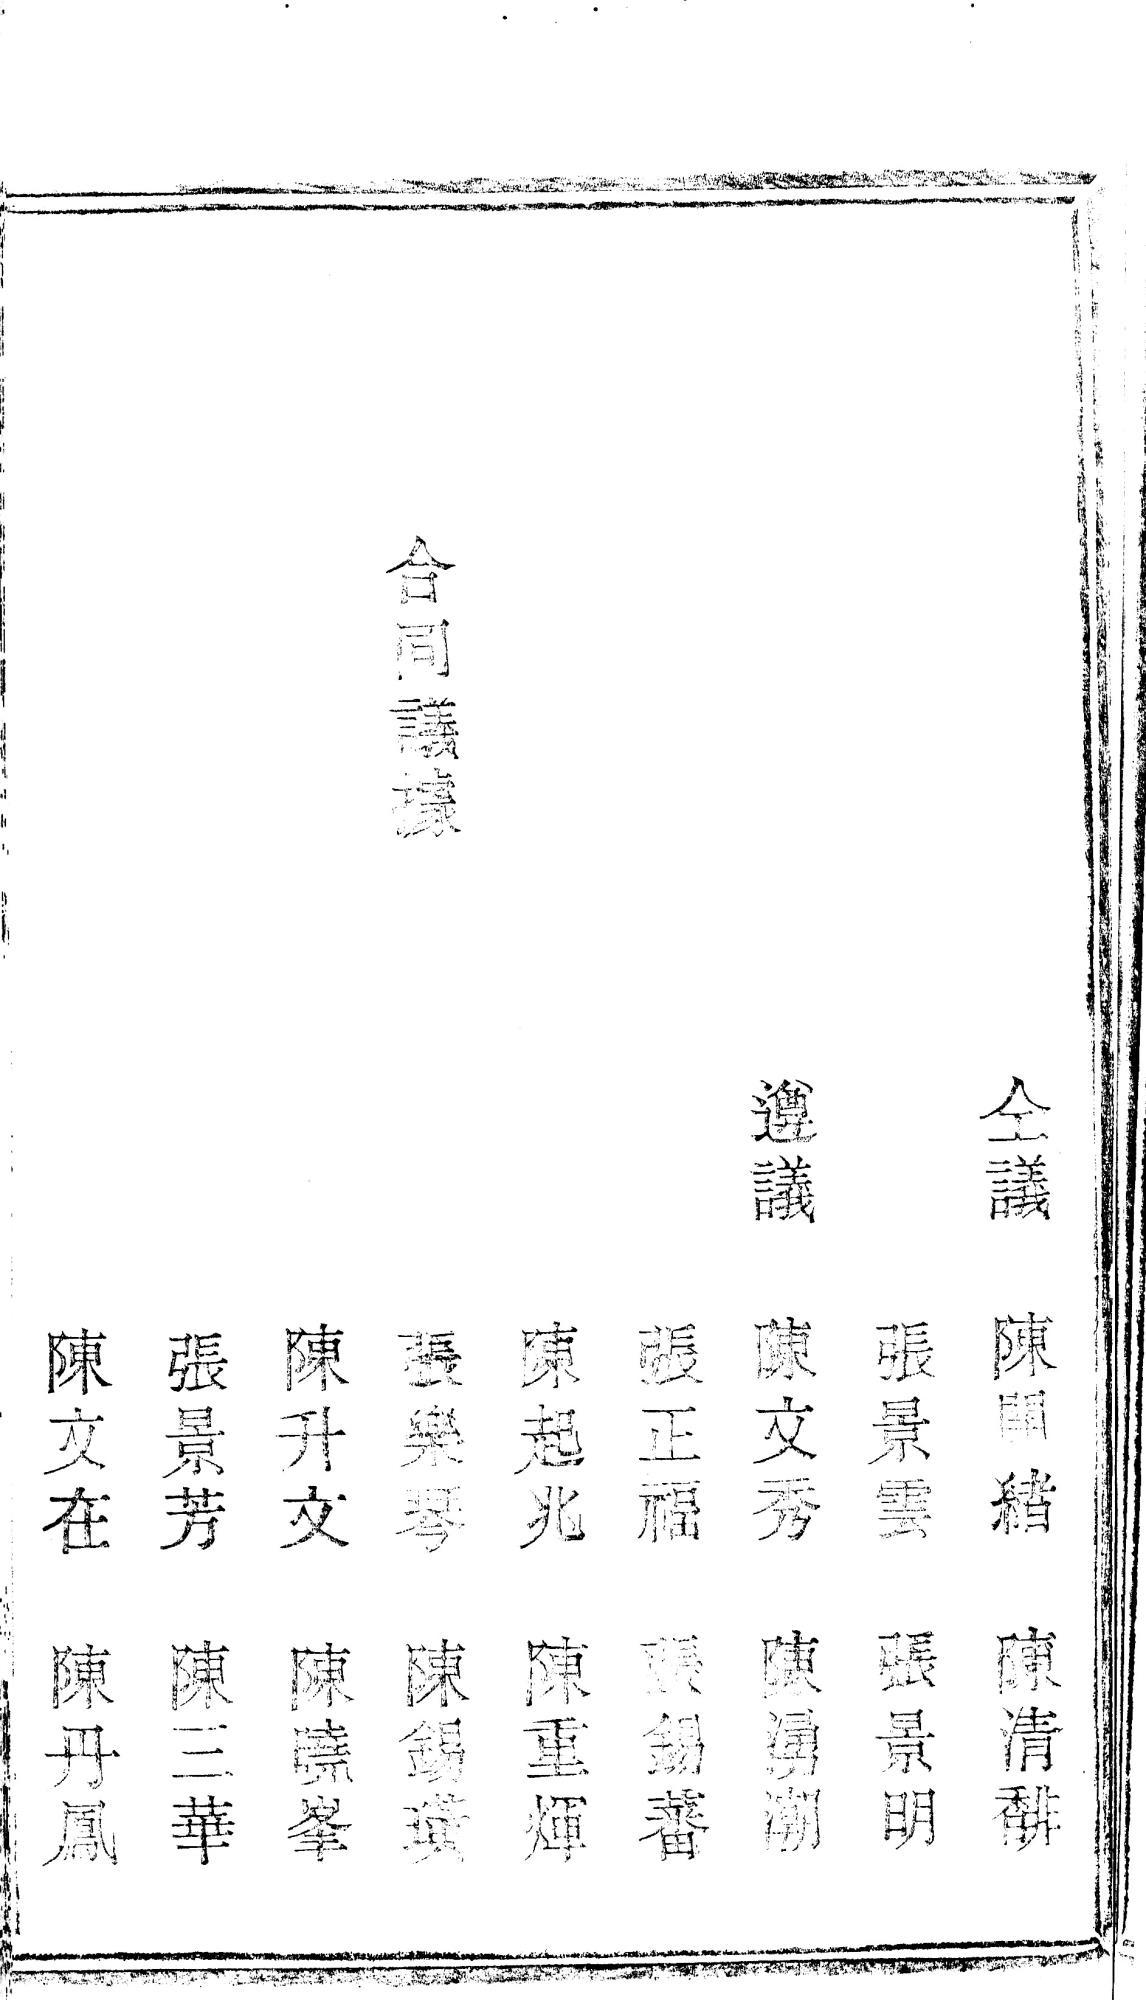 仝議 陳開緒 陳清馡
張景雲 張景明
遵議 陳文秀 陳湧潮
張正福 張錫蕃
陳起兆 陳重輝
合同議據 張樂琴 陳錫璜
陳升文 陳曉峯
張景芳 陳三華
陳文在 陳丹鳳